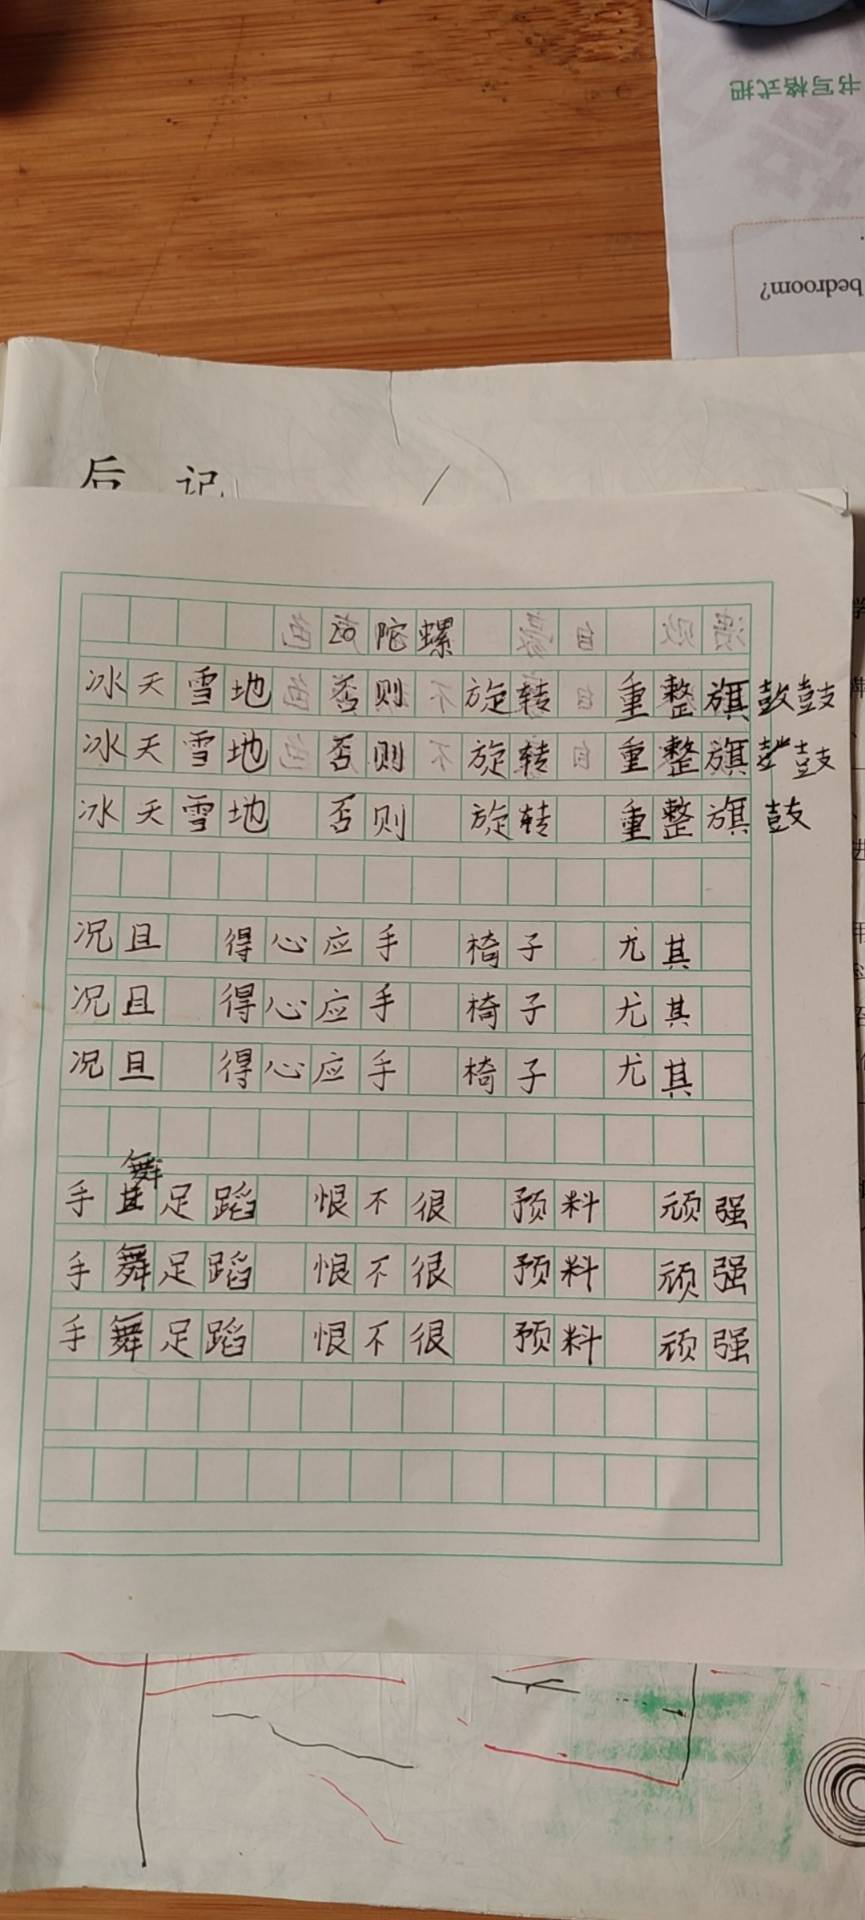 书写格式把
bedroom?
后 记
20 陀螺
冰天雪地 否则 旋转 重整旗鼓鼓
冰天雪地 否则 旋转 重整旗鼓
冰天雪地 否则 旋转 重整旗鼓
况且 得心应手 椅子 尤其
况且 得心应手 椅子 尤其
况且 得心应手 椅子 尤其
舞
手足蹈 恨不很 预料 顽强
手舞足蹈 恨不很 预料 顽强
手舞足蹈 恨不很 预料 顽强